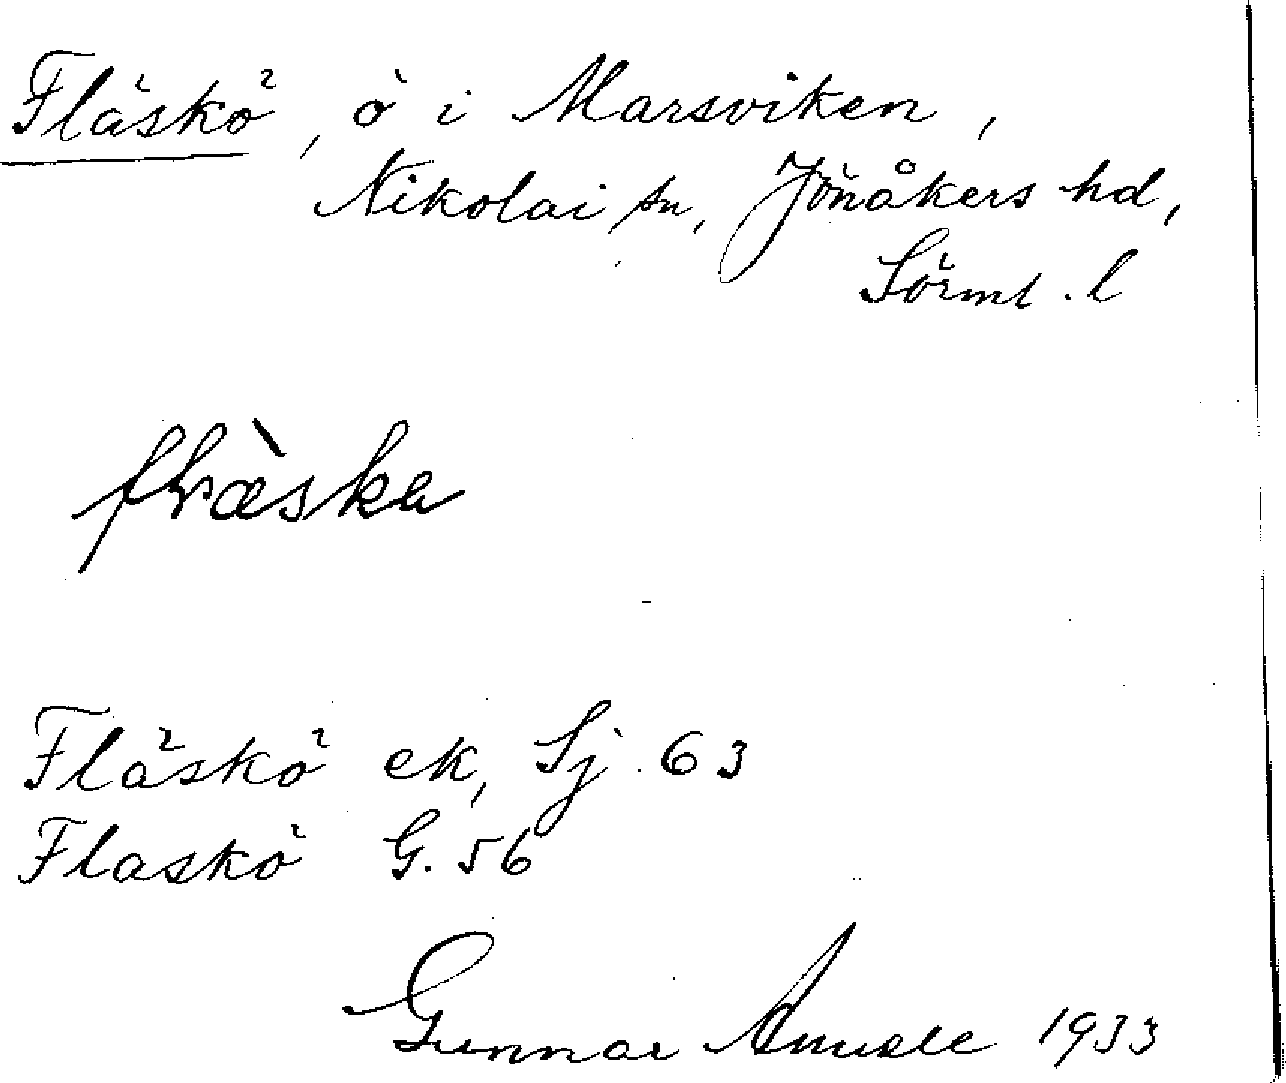 Fläskö, ö i Marsviken,
Nikolai sn, Jönåkers hd,
Sörml. l
fläska
Fläskö ek, Sj. 63
Flaskö G. 56
Gunnar Amusle 1933